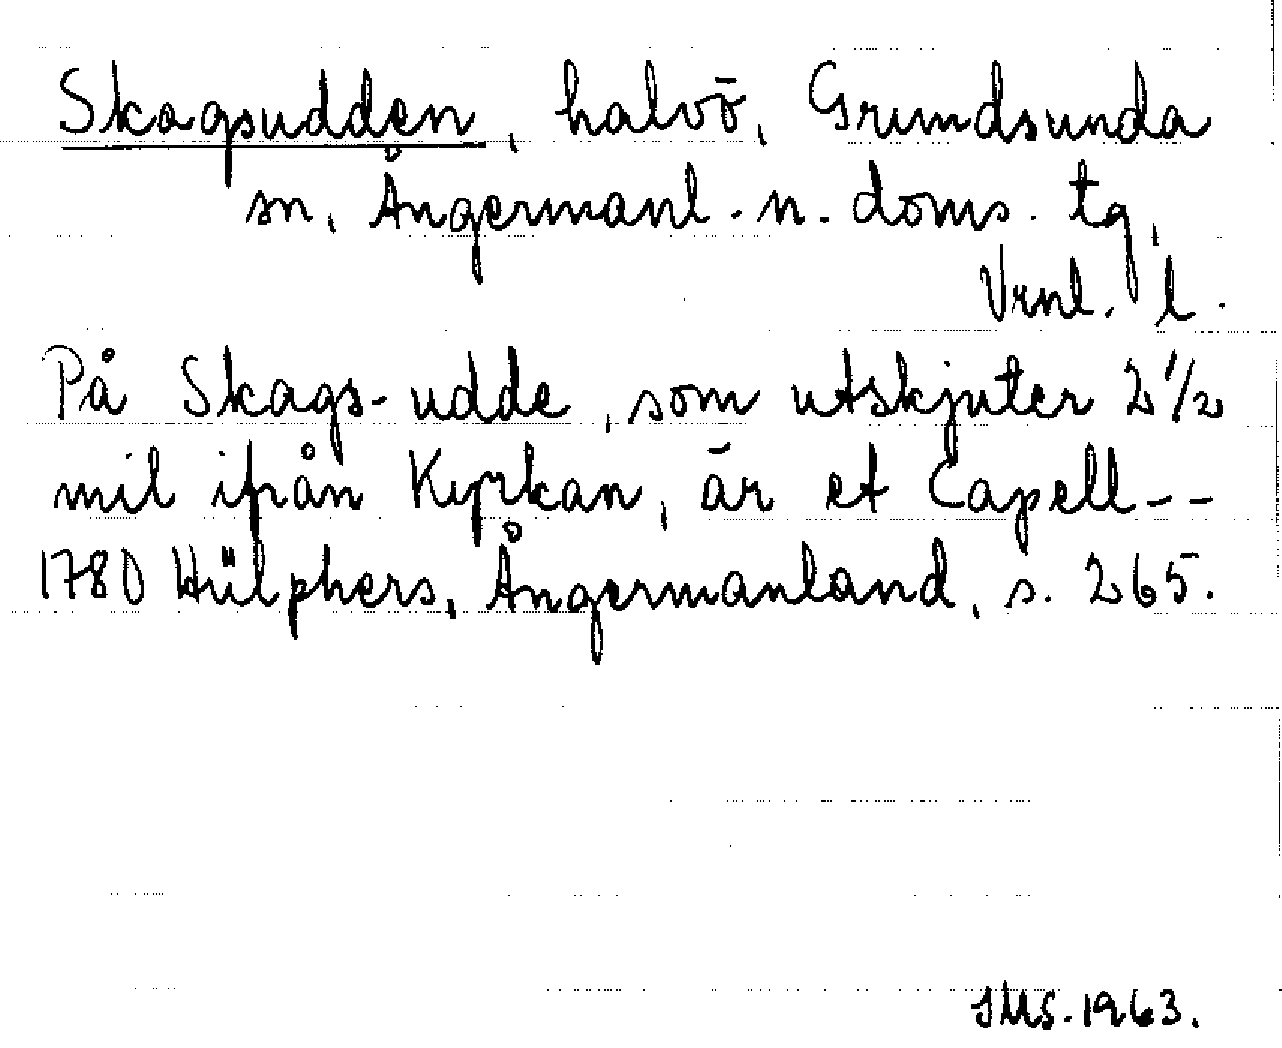 Skagsudden, halvö, Grundsunda
sn, Ångermanl. n. doms. tg,
Vrnl. l.
På Skags-udde, som utskjuter 2 1/2
mil ifrån Kyrkan, är et Capell--
1780 Hülphers, Ångermanland, s. 265.
SMS. 1963.